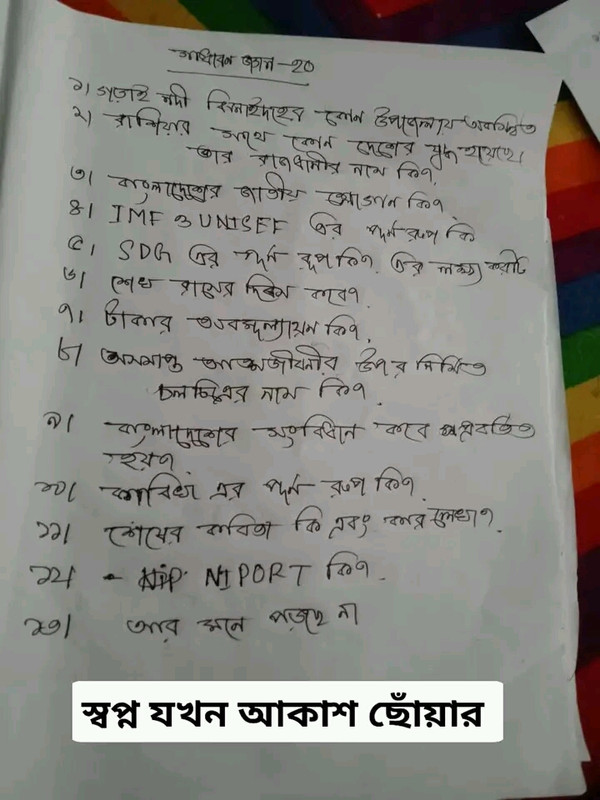 সাধারণ জ্ঞান - ২০
১। গড়াই নদী ঝিনাইদহের কোন উপজেলায় অবস্থিত
২। রাশিয়ার সাথে কোন দেশের যুদ্ধ হয়েছে।
তার রাজধানীর নাম কি?
৩। বাংলাদেশের জাতীয় স্লোগান কি?
৪। IMF ও UNISEF এর পূর্ন রুপ কি
৫। SDG এর পূর্ন রূপ কি? এর লক্ষ্য কয়টি
৬। শেখ রাসেল দিবস কবে?
৭। টাকার অবমূল্যায়ন কি?
৮। অসমাপ্ত আত্মজীবনীর উপর নির্মিত
চলচ্চিত্রের নাম কি?
৯। বাংলাদেশের সংবিধান কবে প্রবর্তিত
হয়?
১০। কাবিখা এর পূর্ন রুপ কি?
১১। শেষের কবিতা কি এবং কার লেখা?
১২। - NIPORT কি?
১৩। আর মনে পড়ছে না
স্বপ্ন যখন আকাশ ছোঁয়ার